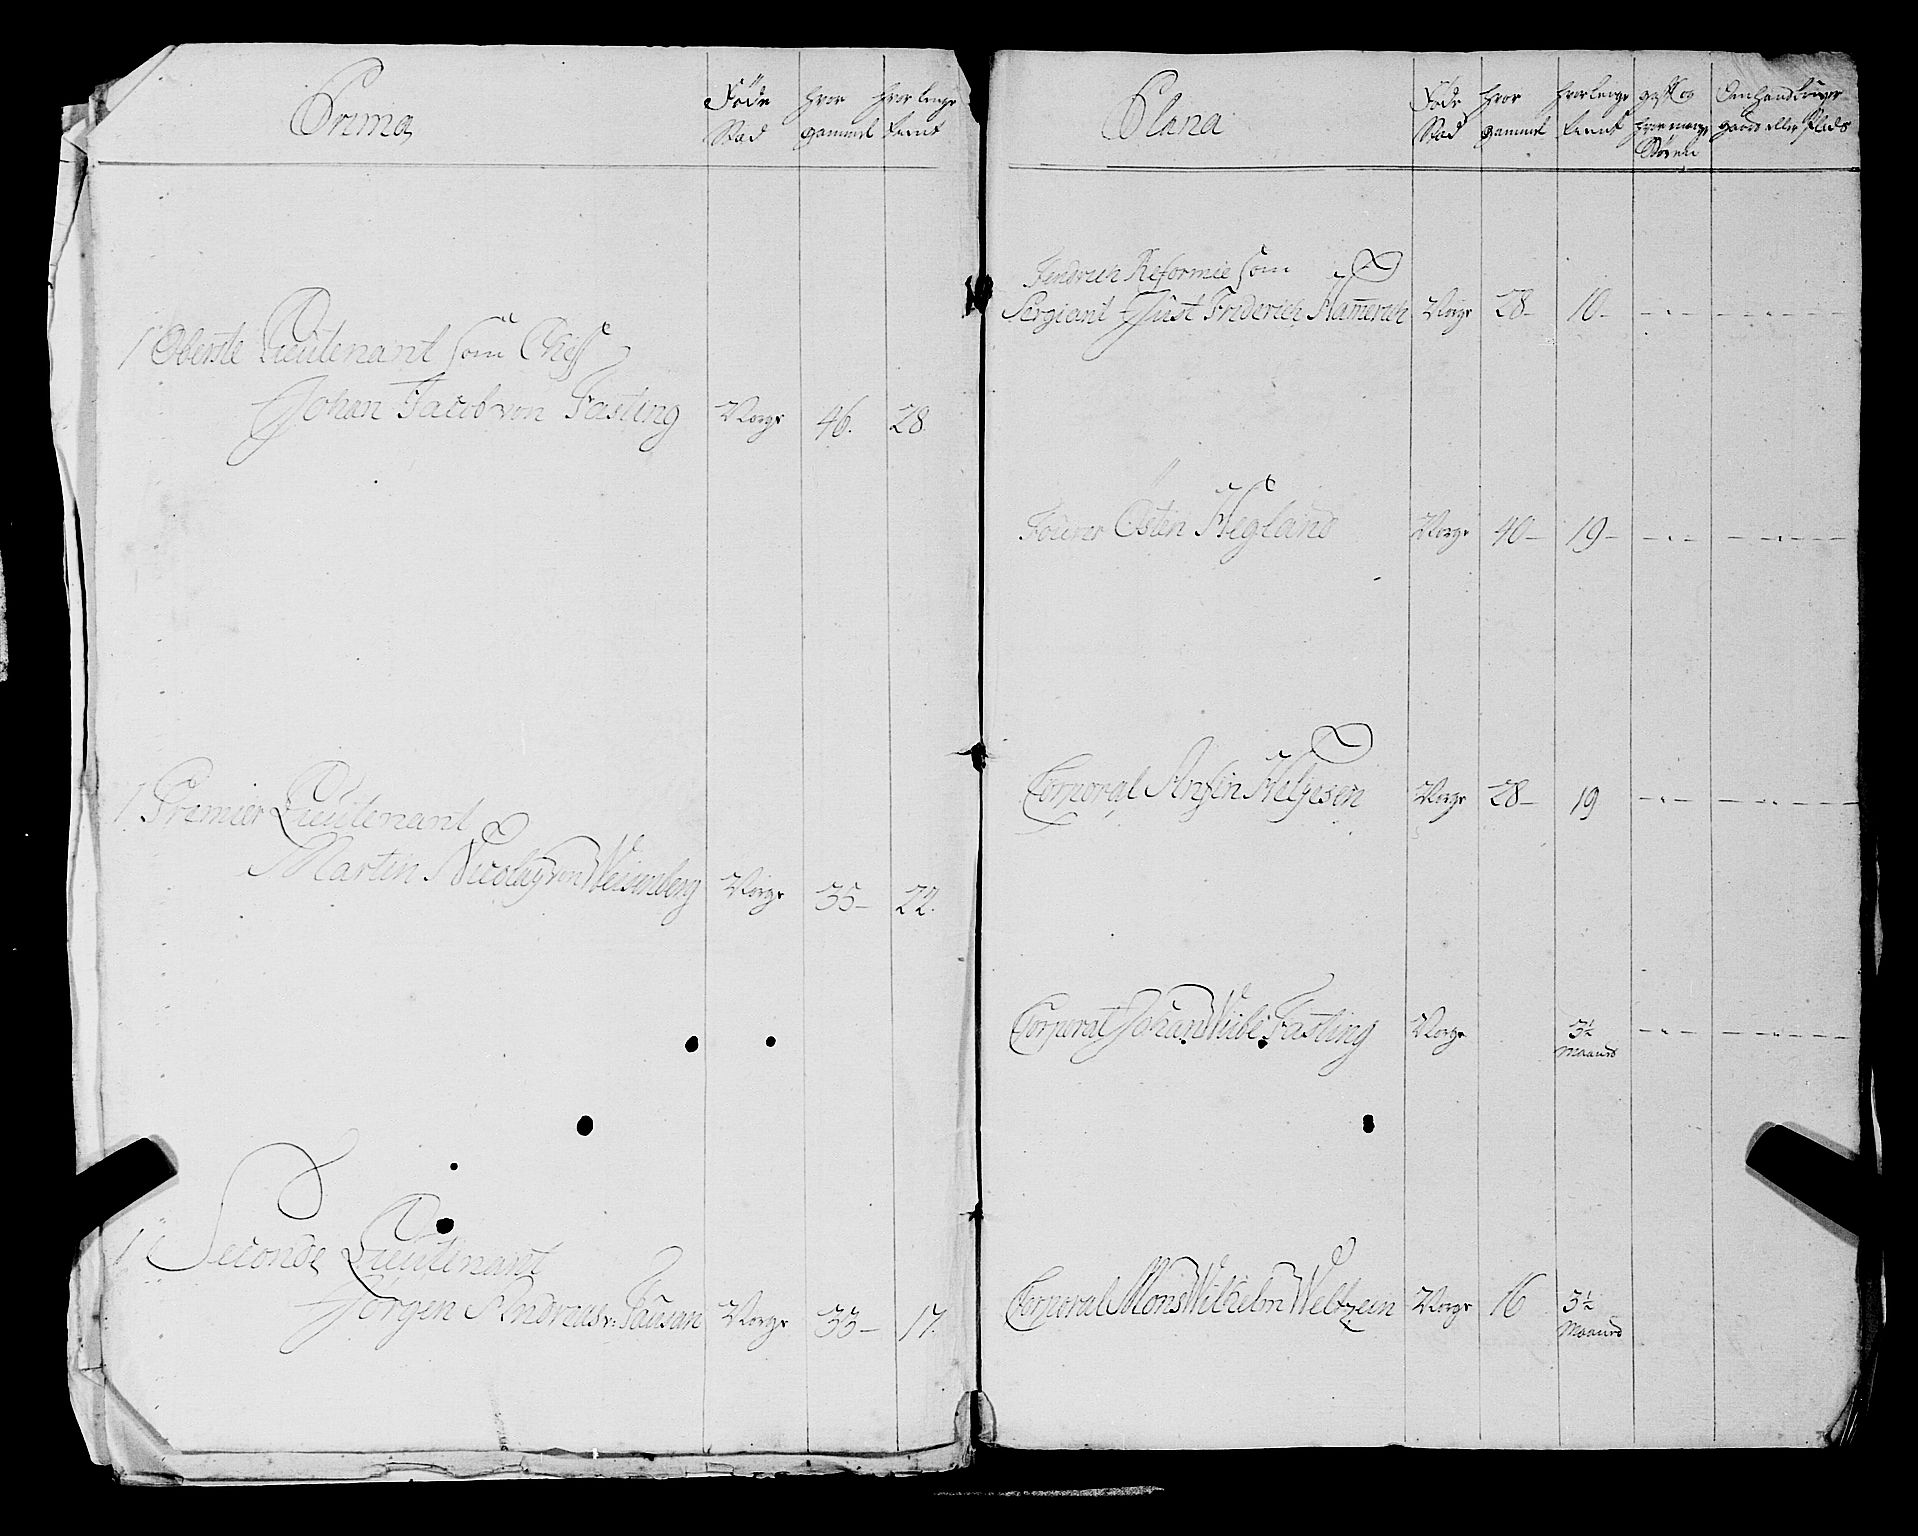 Prima
Föde Stad
hvor gammel
hvor lenge tient
1 Oberste Lieutenant som Cheff
Johan Jacob von Fasting Norge 46. 28.
1 Premier Lieutenant
Martin Nicolay von Weisenberg Norge 35- 22.
1 Seconde Lieutenant
Jörgen Andreas v: Tausan Norge 33- 17.
Plana
Föde Stad
hvor gammel
hvor lenge tient
gift og hvor mange Börn
gaard eller Plads
Fendrich Reformie som
Sergiant Just Friderich Hamerich Norge 28- 10-
Fourer Östen Hegland Norge 40- 19-
Corporal Anfin Helgesen Norge 28- 19
Corporal Johan Wibe Fasting Norge 3½ Maaned
Corporal Mons Wilhelm Weltzein Norge 16 3½ Maaned